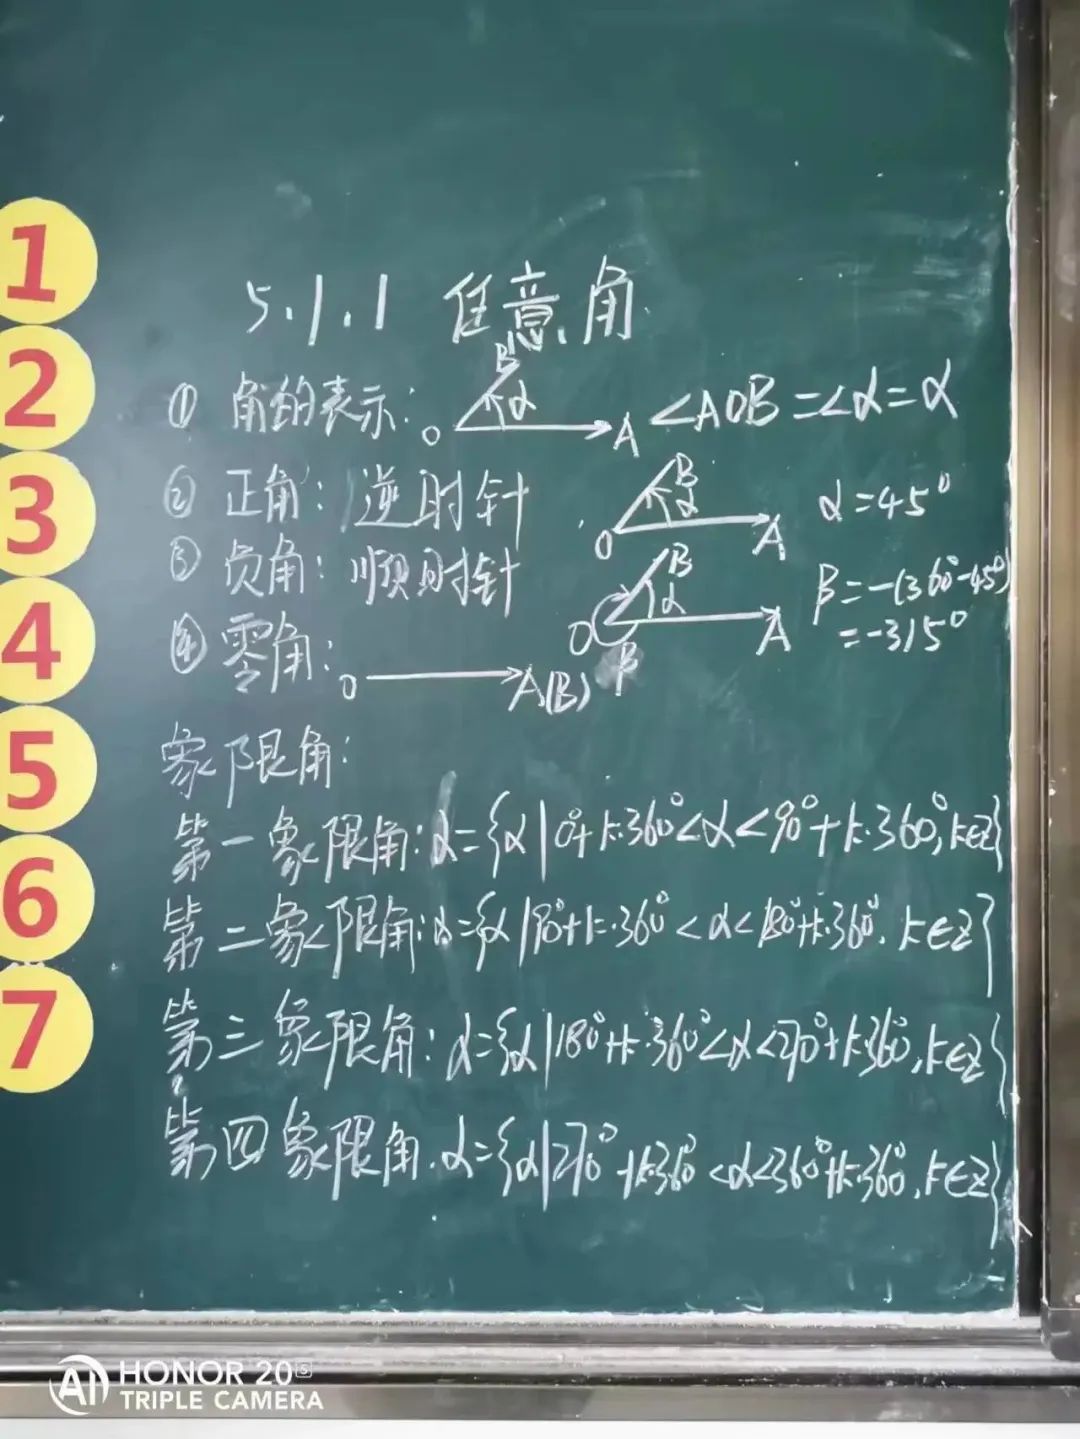 1
2
3
4
5
6
7
5.1.1 任意角
① 角的表示: O B α A <AOB=<α=α
② 正角: 逆时针 O B α A α=45°
③ 负角: 顺时针 O B α A β β=-(360°-45°)
=-315°
④ 零角: O A(B)
象限角:
第一象限角: α={α|0°+k·360°<α<90°+k·360°, k∈Z}
第二象限角: α={α|90°+k·360°<α<180°+k·360°, k∈Z}
第三象限角: α={α|180°+k·360°<α<270°+k·360°, k∈Z}
第四象限角. α={α|270°+k·360°<α<360°+k·360°, k∈Z}
AI HONOR 20S
TRIPLE CAMERA